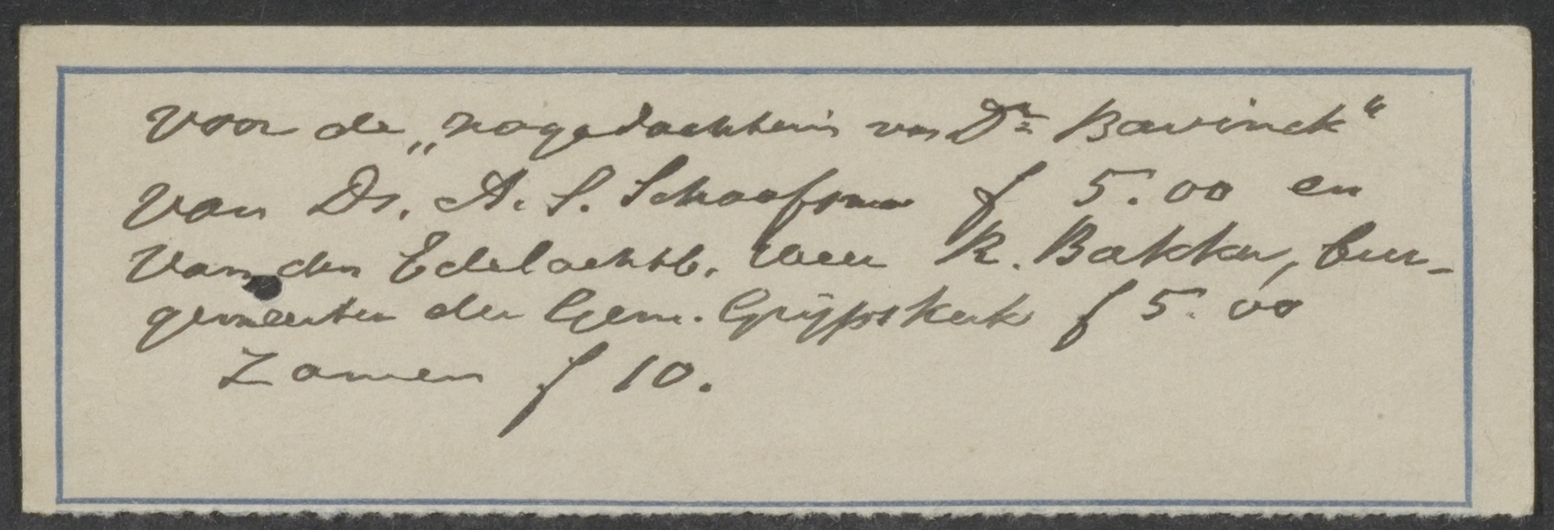 Voor de „nagedachtenis van Dr Bavinck"
van Ds. A. S. Schaafsma f 5.00 en
van den Edelachtb. Heer R. Bakker, bur-
gemeester der Gem. Grijpskerk f 5.00
Zamen f 10.